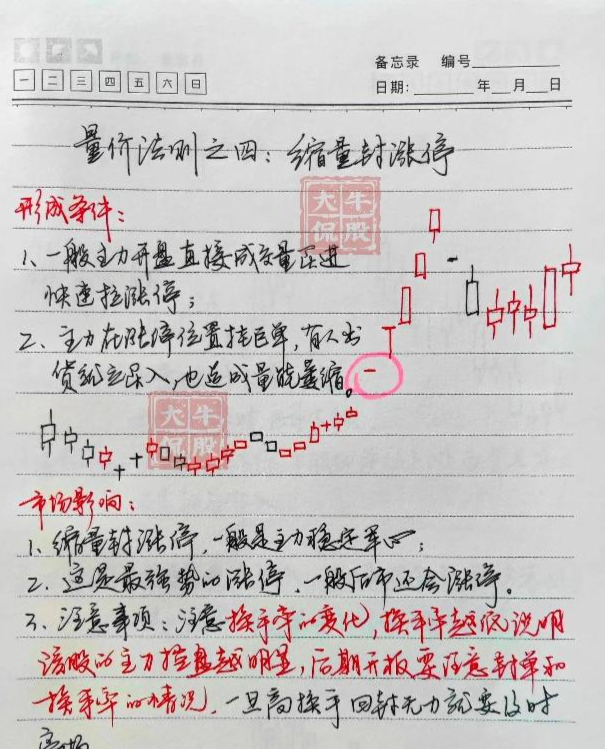 备忘录 编号
一 二 三 四 五 六 日
日期: 年 月 日
量价法则之四：缩量封涨停
大牛
侃股
形成条件：
1、一般主力开盘直接成交量跃进
快速拉涨停；
2、主力在涨停位置挂巨单，有人出
货就立吴入，也造成量能萎缩。
大牛
侃股
市场影响：
1、缩量封涨停，一般是主力稳定军心；
2、这是最强势的涨停，一般后市还会涨停。
3、注意事项：注意换手率的变化，换手率越低说明
该股的主力控盘越明显，后期开板要注意封单和
换手率的情况，一旦高换手回封无力就要及时
离场